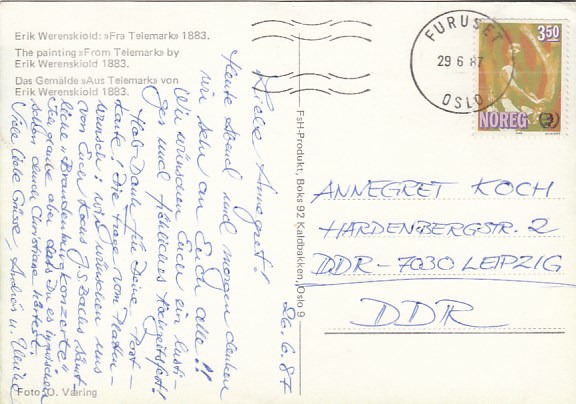 Erik Werenskiold: »Fra Telemark» 1883.
The painting »From Telemark» by
Erik Werenskiold 1883.
Das Gemälde »Aus Telemark» von
Erik Werenskiold 1883.
26.6.87
Liebe Annegret!
Heute Abend und morgen denken
wir sehr an Euch alle!!
Wir wünschen Euch ein lusti-
ges und fröhliches Hochzeitsfest!
Hab Dank für Deine Post-
karte! Die Frage vom Platten-
wunsch: wir wünschen uns
von Euch Koch J.S. Bachs sämt-
liche "Brandenburgkonzerte"
Ich glaube aber, dass Du es inzwischen
schon durch Christiane hörtest.
Viele liebe Grüsse, Andreas u.
Foto: O. Væring
FsH-Produkt, Boks 92 Kaldbakken, Oslo 9
FURUSET
29 6 87
OSLO
3.50
NOREG
ANNEGRET KOCH
HARDENBERGSTR. 2
DDR-7030 LEIPZIG
DDR